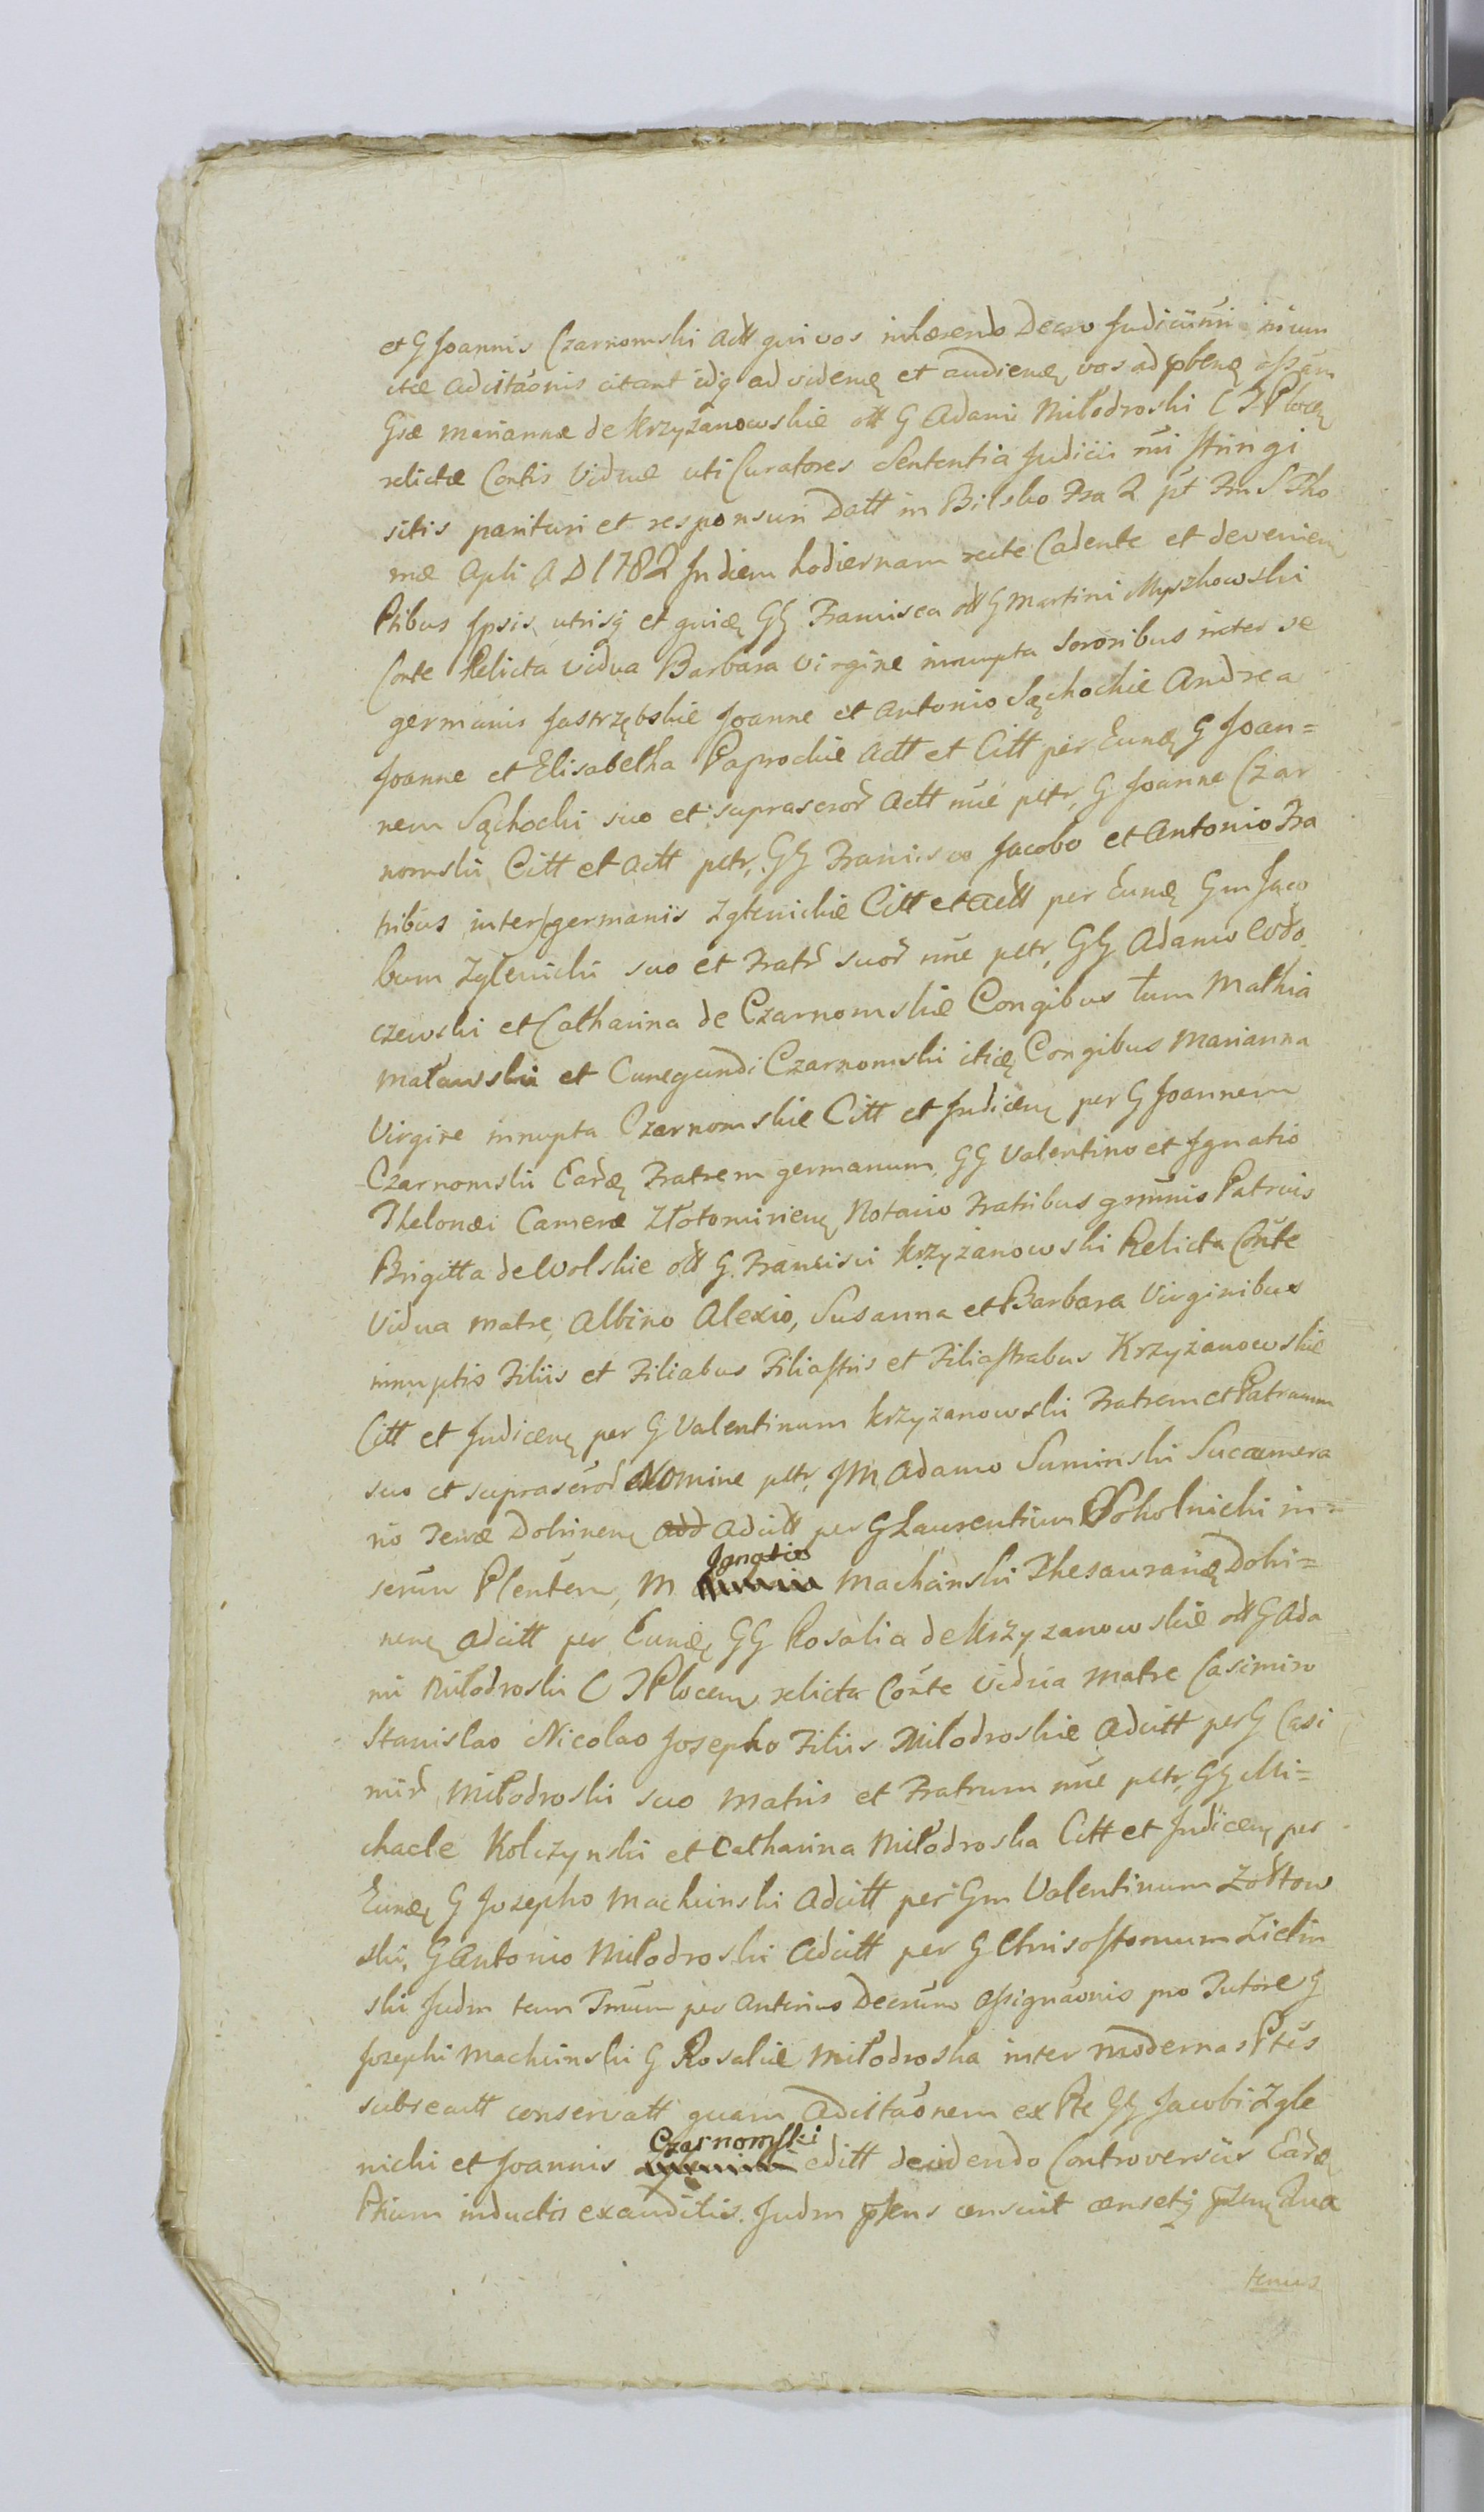 et G Joannis Czarnomski Actt qui vos inhærendo Decso Judicii nri nium
ctæ Adcitaonis citant idq ad videnę et audienę vos ad
Gsæ Mariannæ de Krzyżanowskie ott G Adami Miłodroski C T Plocen
relictæ Contis Viduæ uti Curatores Sententia Judicii nri stringi
sitis parituri et responsuri Datt in Bilsko Fra 2 pt Frm S Tho
mæ Apli A D 1782 In diem hodiernam recte Cadente et devenien
Ptibus Ipsis utrisq et quiæ GG Francisca ott G Martini Myszkowski
Conte Relicta Vidua Barbara Virgine innupta Sororibus inter se
germanis Jastrzębskie Joanne et Antonio Sąchockie Andrea
Joanne et Elisabetha Paprockie Actt et Citt per Eundę G Joan=
nem Sąchocki suo et suprascror Actt nne pctr, G Joanne Czar
nomski Citt et Actt pctr, GG Francisco Jacobo et Antonio Fra
tribus inter se germanis Zglenickie Citt et Actt per Eundę Gm Jaco
bum Zglenicki suo et Fratr suor nne pctr, GG Adamo Wdo
czewski et Catharina de Czarnomskie Congibus tum Mathia
Matawski et Cunegundi Czarnomski itidę Congibus Marianna
Virgine innupta Czarnomskie Citt et Judicen per G Joannem
Czarnomski Eardę Fratrem germanum, GG Valentino et Ignatio
Thelonæi Cameræ Złotoririenę Notario Fratribus grmnis Patruis
Brigitta de Wolskie ott G. Francisci Krzyżanowski Relicta Conte
Vidua Matre, Albino Alexio, Susanna et Barbara Virginibus
innuptis Filiis et Filiabus Filiastris et Filiastrabus Krzyżanowskie
Citt et Judicenę per G Valentinum Krzyzanowski Fratrem et Patruum
suo et suprascror Nomine pctr, JM, Adamo Suminski Succamera
rio Terræ Dobrinenę Adcitt per G Laurentium Pokolnicki in=
serum Plentem, M Ignatio Machcinski Thesaurariæ Dobri=
nenę Adcitt per Eundę GG Rosalia de Krzyzanowskie ott G Ada
mi Miłodroski C T Plocen relicta Conte vidua Matre Casimiro
Stanislao Nicolao Josepho Filiis Miłodroskie Adcitt per G Casi
mir Miłodroski suo Matris et Fratrum nne pctr, GG Mi=
chaele Kolczynski et Catharina Miłodroska Citt et Judicenę per
Eundę G Josepho Machcinski Adcitt per Gm Valentinum Zołtow
ski, G Antonio Miłodroski Adcitt per G Chrisostomum Zielin
ski Judm tam Pnum per Anterius Decrum Assignaonis pro Tutore G
Josephi Machcinski G Rosaliæ Miłodroska inter modernas Ptes
subsecutt conservatt quam Adcitaonem ex Pte GG Jacobi Zgle
nicki et Joannis Czarnomski editt decidendo Controversiis Eardę
Ptium inductis exauditis. Judm censuit censetq Qua
tenus